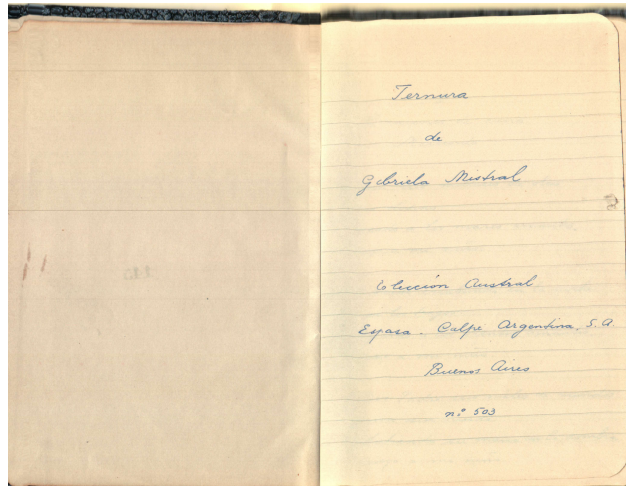 Ternura
de
Gabriela Mistral
Colección Austral
Espasa - Calpe Argentina, S.A.
Buenos Aires
nº 503